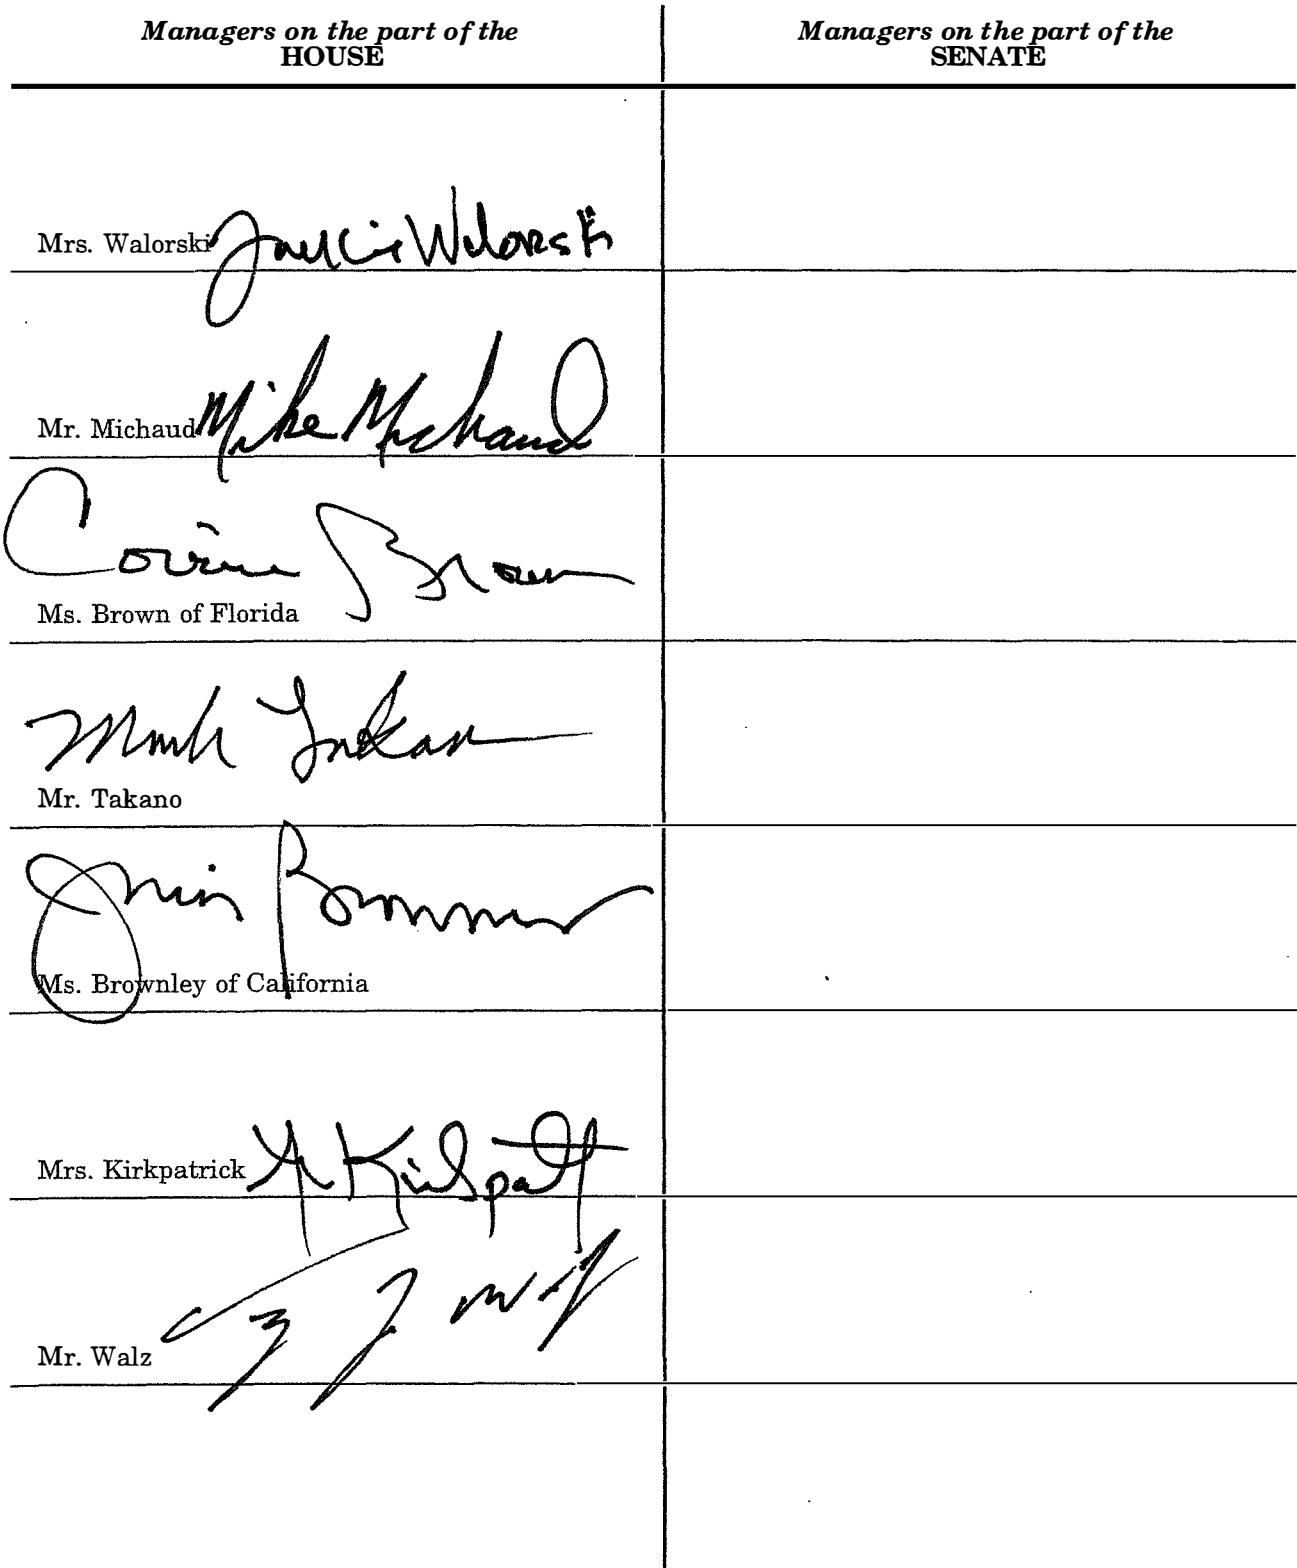 Managers on the part of the
HOUSE
Managers on the part of the
SENATE
Mrs. Walorski Jackie Walorski
Mr. Michaud Mike Michaud
Corrine Brown
Ms. Brown of Florida
Mark Takano
Mr. Takano
Ms. Brownley of California
Mrs. Kirkpatrick Kirkpatrick
Mr. Walz